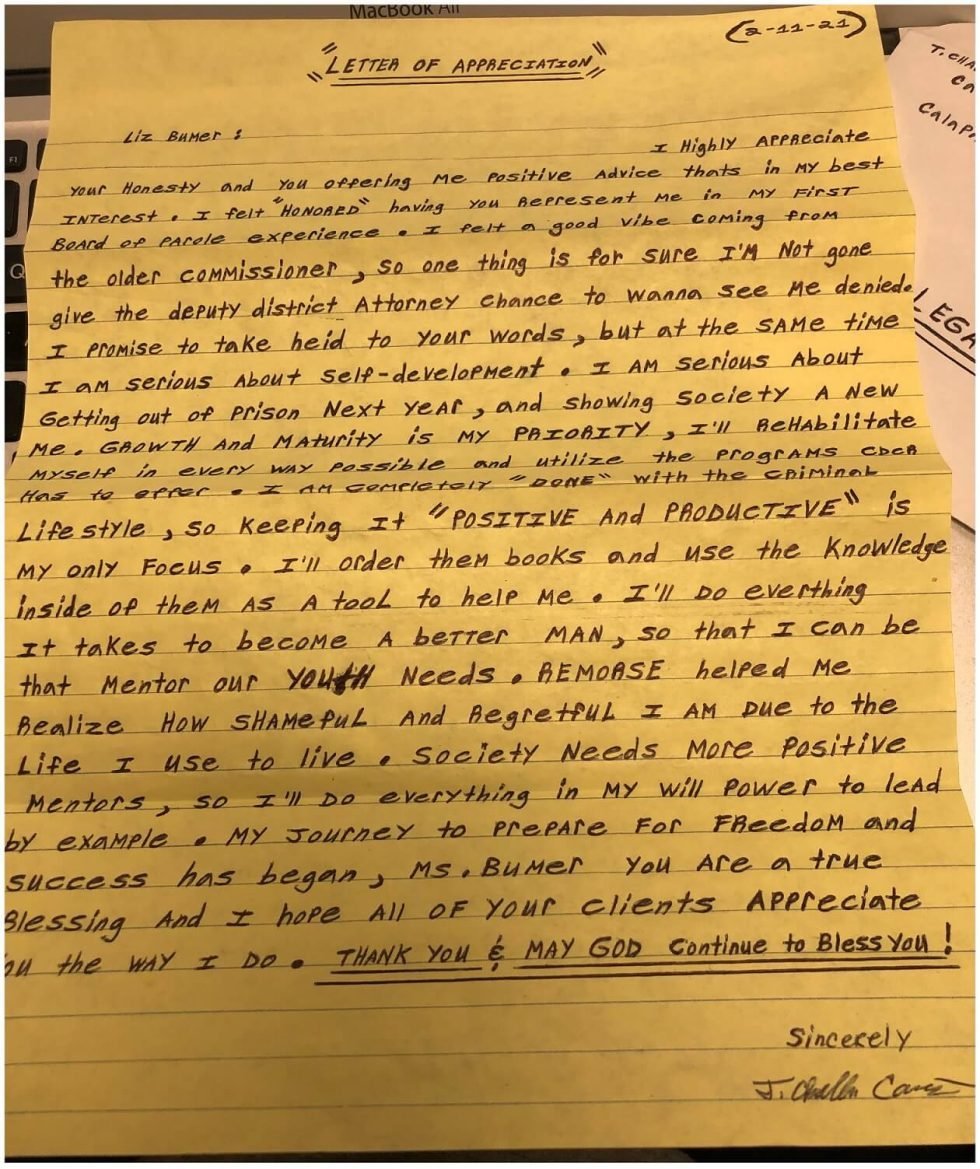 MacBook Air
(2-11-21)
"LETTER OF APPRECIATION"
Liz Bumer :
I Highly Appreciate
your Honesty and you offering me positive Advice thats in my best
INterest. I felt "HONORED" having you Represent me in my First
Board of parole experience. I felt a good vibe coming from
the older commissioner, so one thing is for sure I'm Not gone
give the deputy district Attorney chance to wanna see me denied.
I promise to take heid to your words, but at the same time
I am serious About self-development. I AM serious About
Getting out of prison Next year, and showing society A New
me. GROWTH And MAturity is My PRIORITY, I'll ReHAbilitate
myself in every way possible and utilize the programs CDCR
Has to offer. I AM completely "DONE" with the criminal
Lifestyle, so keeping It "POSITIVE And PRODUCTIVE" is
my only Focus. I'll order them books and use the Knowledge
inside of them As A tool to help me. I'll Do everthing
It takes to become A better MAN, so that I can be
that Mentor our YOUTH Needs. REMORSE helped Me
Realize How SHAMeful And Regretful I AM Due to the
Life I use to live. Society Needs More Positive
Mentors, so I'll Do everything in My will power to leAd
by example. My Journey to prepare For FReedom and
success has began, Ms. Bumer you Are a true
Blessing And I hope All OF your clients Appreciate
the WAY I Do. THANK YOU & MAY GOD Continue to Bless You!
Sincerely
T. CHA
CA
LEGA